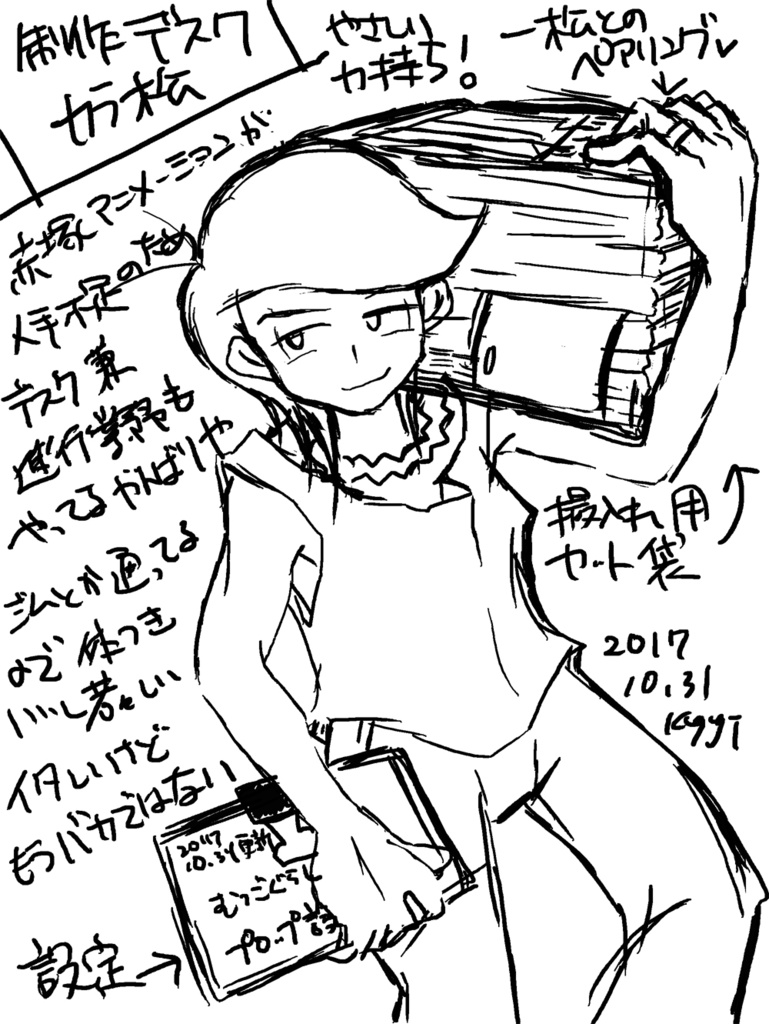 制作デスク
カラ松
やさしい
力持ち!
一松との
ペアリング✓
赤塚アニメーションが
人手不足のため
デスク兼
進行業務も
やってるがんばりや
ジムとか通ってる
ので体つき
いいし若々しい
イタいけど
もうバカではない
撮入れ用
カット袋
2017
10.31
設定→
2017
10.31更新
むつごぐらし
プロップ設